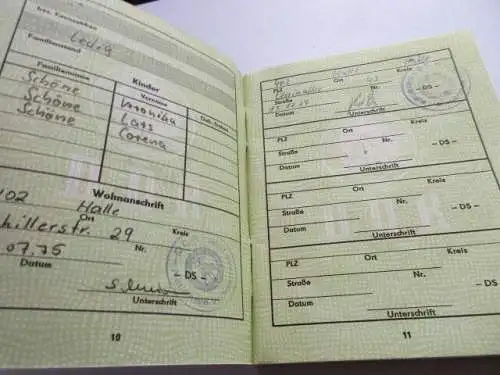 Erw. Kennzeichen
Ledig
Familienstand
Kinder
Familienname
Vorname
Geb.-Datum
Schöne
Schöne
Schöne
Veronika
Lars
Corena
Wohnanschrift
102 Halle
Ort
Kreis
hillerstr. 29
Nr.
07.75
Datum
– DS –
Unterschrift
10
PLZ
Ort
Kreis
Straße
Nr.
Datum
Unterschrift
PLZ
Ort
Kreis
Straße
Nr.
– DS –
Datum
Unterschrift
PLZ
Ort
Kreis
Straße
Nr.
– DS –
Datum
Unterschrift
PLZ
Ort
Kreis
Straße
Nr.
– DS –
Datum
Unterschrift
11